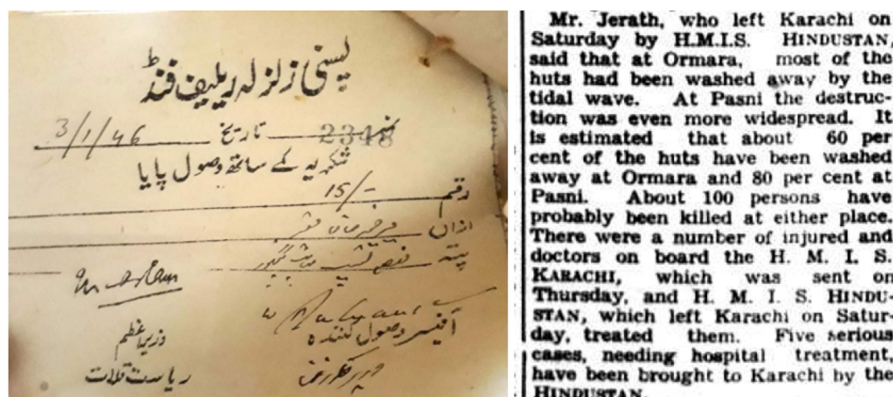 پسنی زلزلہ ریلیف فنڈ
نمبر 2348 تاریخ 3/1/46
شکریہ کے ساتھ وصول پایا
رقم 15/-
ازاں
پتہ
آفیسر وصول کنندہ
وزیر اعظم
ریاست قلات
Mr. Jerath, who left Karachi on
Saturday by H.M.I.S. HINDUSTAN,
said that at Ormara, most of the
huts had been washed away by the
tidal wave. At Pasni the destruc-
tion was even more widespread. It
is estimated that about 60 per
cent of the huts have been washed
away at Ormara and 80 per cent at
Pasni. About 100 persons have
probably been killed at either place.
There were a number of injured and
doctors on board the H. M. I. S.
KARACHI, which was sent on
Thursday, and H. M. I. S. HINDU-
STAN, which left Karachi on Satur-
day, treated them. Five serious
cases, needing hospital treatment,
have been brought to Karachi by the
HINDUSTAN.